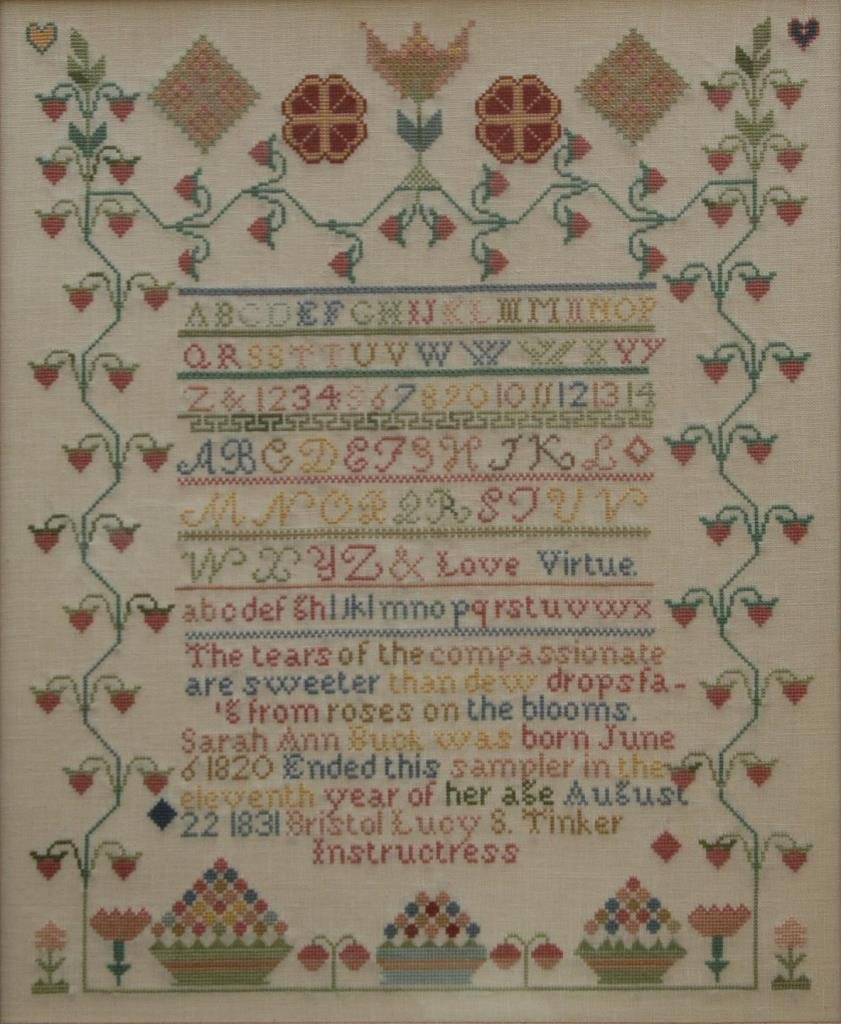 ABCDEFGHIJKLIIIMIINOP
QRSSTTUVWWWXYY
Z&1234567891011121314
ABCDEFGHIKL
MNOPQRSTUV
WXYZ& Love Virtue.
abcdefghIJklmnopqrstuvwx
The tears of the compassionate
are sweeter than dew drops fa-
'g from roses on the blooms.
Sarah Ann Buck was born June
6 1820 Ended this sampler in the
eleventh year of her age August
22 1831 Bristol Lucy S. Tinker
Instructress